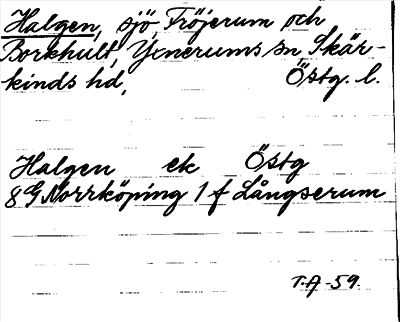 Halgen, sjö, Fröjerum och
Borkhult, Yxnerums sn, Skär-
kinds hd, Östg. l.
Halgen ek Östg
8G Norrköping 1 f Långserum
T.A-59.